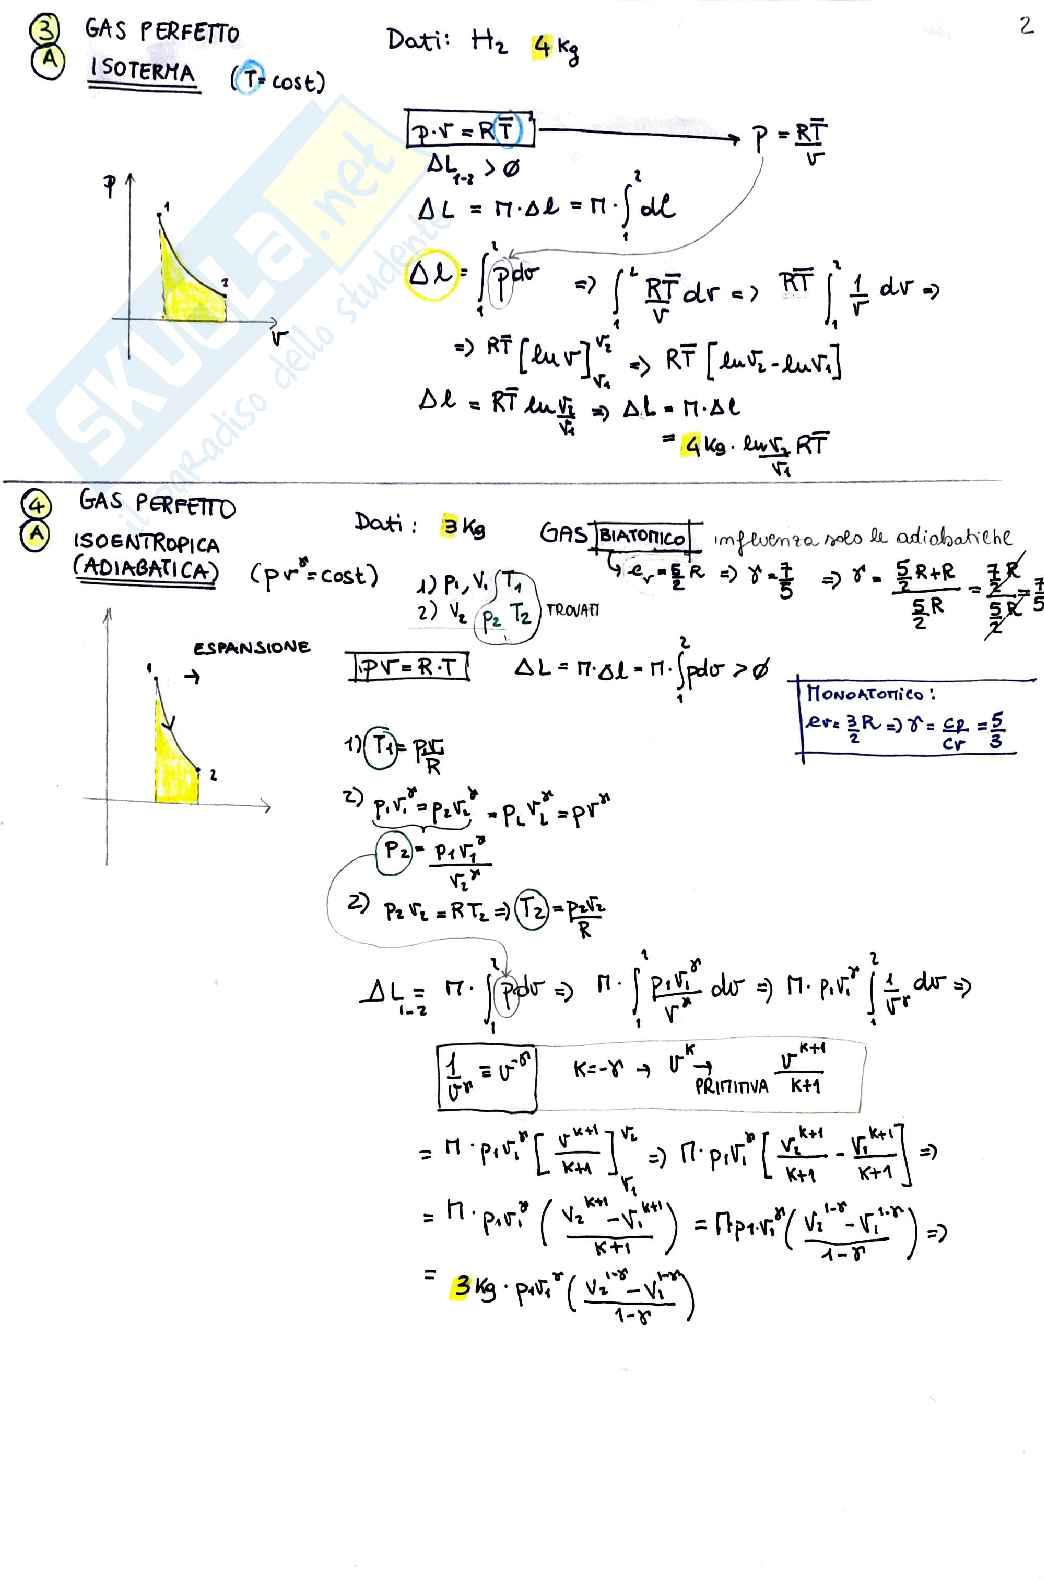 2
3 GAS PERFETTO
A ISOTERMA (T=cost)
Dati: H₂ 4 Kg
p·v = RT̅ → p = RT̅/v
ΔL₁₋₂ > ∅
ΔL = M·Δl = M·∫₁² dl
Δl = ∫₁² pdv => ∫₁² RT̅/v dv => RT̅ ∫₁² 1/v dv =>
=> RT̅ [ln v]ᵥ₁ᵛ² => RT̅ [lnv₂-lnv₁]
Δl = RT̅ ln v₂/v₁ => ΔL = M·Δl
= 4 Kg · ln v₂/v₁ RT̅
p
1
2
v
4 GAS PERFETTO
A ISOENTROPICA
(ADIABATICA) (pvᵞ=cost)
Dati: 3 Kg
GAS BIATOMICO influenza solo le adiabatiche
cv = 5/2 R => γ = 7/5 => γ = (5/2 R+R)/(5/2 R) = (7/2 R)/(5/2 R) = 7/5
1) p₁, v₁ T₁
2) v₂ p₂ T₂ TROVATI
ESPANSIONE
1 →
2
pv = R·T ΔL = M·Δl = M·∫₁² pdv > ∅
MONOATOMICO:
cv = 3/2 R => γ = cp/cv = 5/3
1) T₁ = p₁v₁/R
2) p₁v₁ᵞ = p₂v₂ᵞ = p₂v₂ᵞ = pvᵞ
p₂ = p₁v₁ᵞ/v₂ᵞ
2) p₂v₂ = RT₂ => T₂ = p₂v₂/R
ΔL₁₋₂ = M·∫₁² pdv => M·∫₁² p₁v₁ᵞ/vᵞ dv => M·p₁v₁ᵞ ∫₁² 1/vᵞ dv =>
1/vᵞ ≡ v⁻ᵞ K=-γ → vᴷ → PRIMITIVA vᴷ⁺¹/K+1
= M·p₁v₁ᵞ [vᴷ⁺¹/K+1]ᵥ₁ᵛ² => M·p₁v₁ᵞ [v₂ᴷ⁺¹/K+1 - v₁ᴷ⁺¹/K+1] =>
= M·p₁v₁ᵞ (v₂ᴷ⁺¹-v₁ᴷ⁺¹/K+1) = Mp₁·v₁ᵞ (v₂¹⁻ᵞ-v₁¹⁻ᵞ/1-γ) =>
= 3 Kg·p₁v₁ᵞ (v₂¹⁻ᵞ-v₁¹⁻ᵞ/1-γ)
SKUOLA.net
il paradiso dello studente